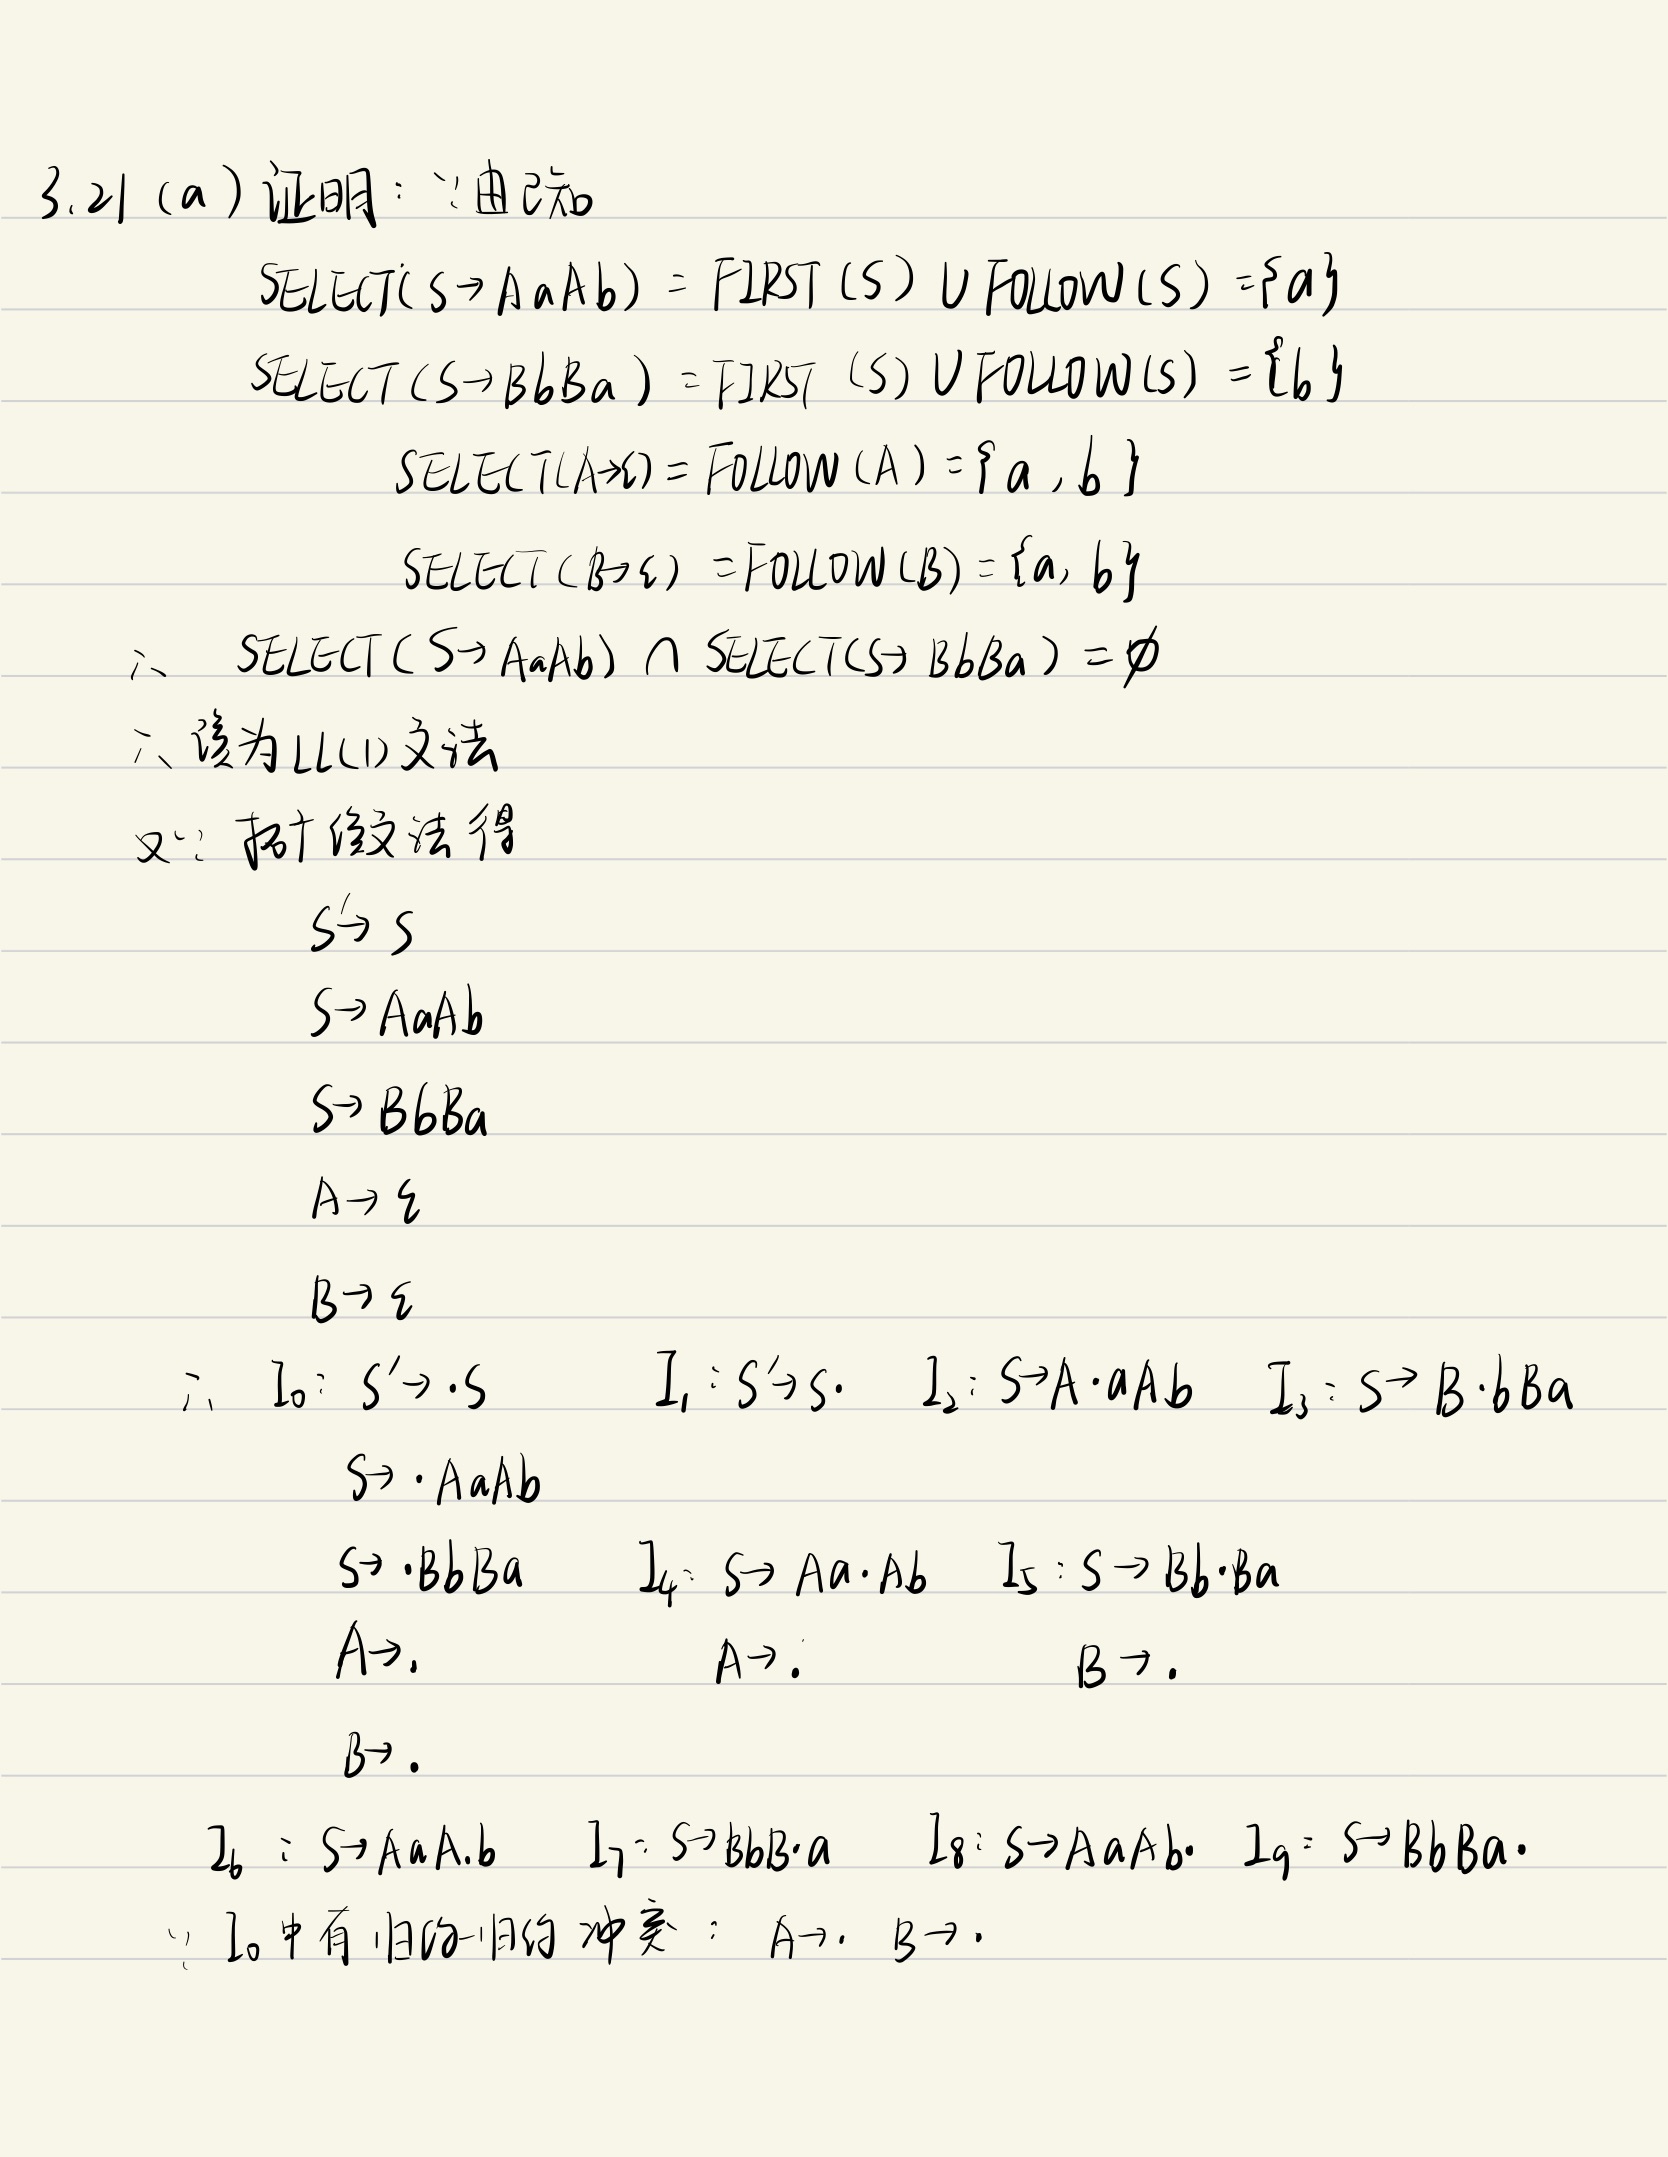 3.21 (a) 证明: ∵由已知
SELECT(S→AaAb) = FIRST(S) ∪ FOLLOW(S) = {a}
SELECT(S→BbBa) = FIRST (S) ∪ FOLLOW(S) = {b}
SELECT(A→ε) = FOLLOW(A) = {a, b}
SELECT(B→ε) = FOLLOW(B) = {a, b}
∴ SELECT(S→AaAb) ∩ SELECT(S→BbBa) = ∅
∴ 该为LL(1)文法
又∵ 拓广该文法得
S'→S
S→AaAb
S→BbBa
A→ε
B→ε
∴ I₀: S'→·S I₁: S'→S· I₂: S→A·aAb I₃: S→B·bBa
S→·AaAb
S→·BbBa I₄: S→Aa·Ab I₅: S→Bb·Ba
A→· A→· B→·
B→·
I₆: S→AaA·b I₇: S→BbB·a I₈: S→AaAb· I₉: S→BbBa·
∵ I₀中有归约-归约冲突: A→· B→·